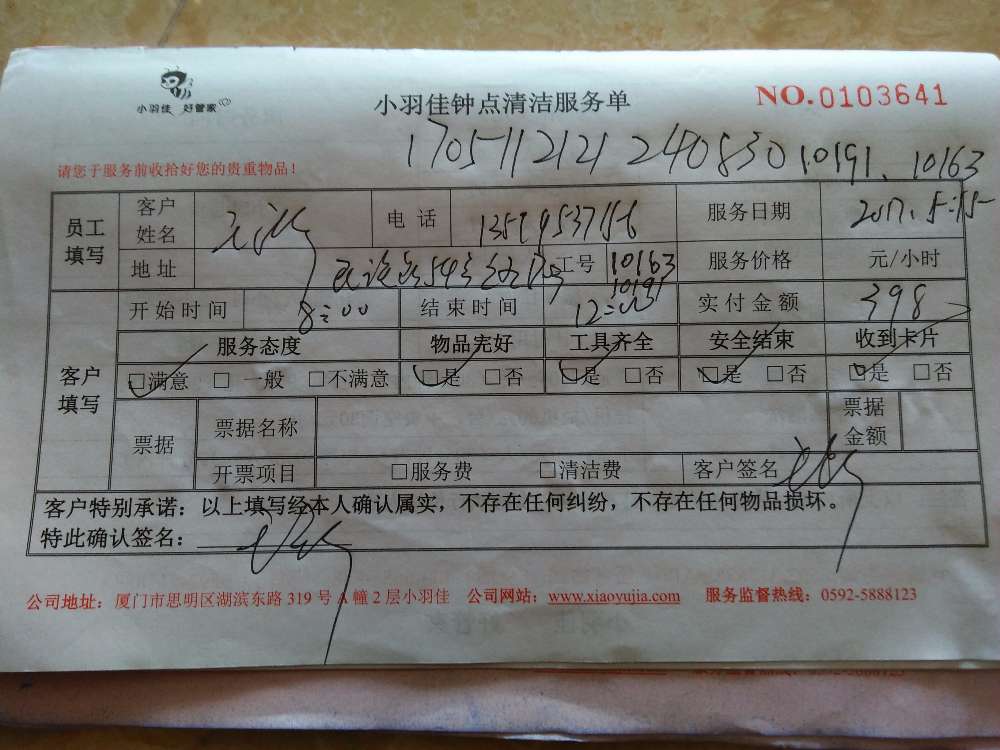 小羽佳 好管家
小羽佳钟点清洁服务单
NO.0103641
1705112121240830 10191、10163
请您于服务前收拾好您的贵重物品！
员工填写 客户姓名 电话 服务日期 2017.5.15
地址 工号 10163 10191 服务价格 元/小时
客户填写 开始时间 8:00 结束时间 12:00 实付金额 398
服务态度 物品完好 工具齐全 安全结束 收到卡片
☑满意 □一般 □不满意 ☑是 □否 ☑是 □否 ☑是 □否 ☑是 □否
票据 票据名称 票据金额
开票项目 □服务费 □清洁费 客户签名
客户特别承诺：以上填写经本人确认属实，不存在任何纠纷，不存在任何物品损坏。
特此确认签名：
公司地址：厦门市思明区湖滨东路 319 号 A 幢 2 层小羽佳 公司网站：www.xiaoyujia.com 服务监督热线：0592-5888123